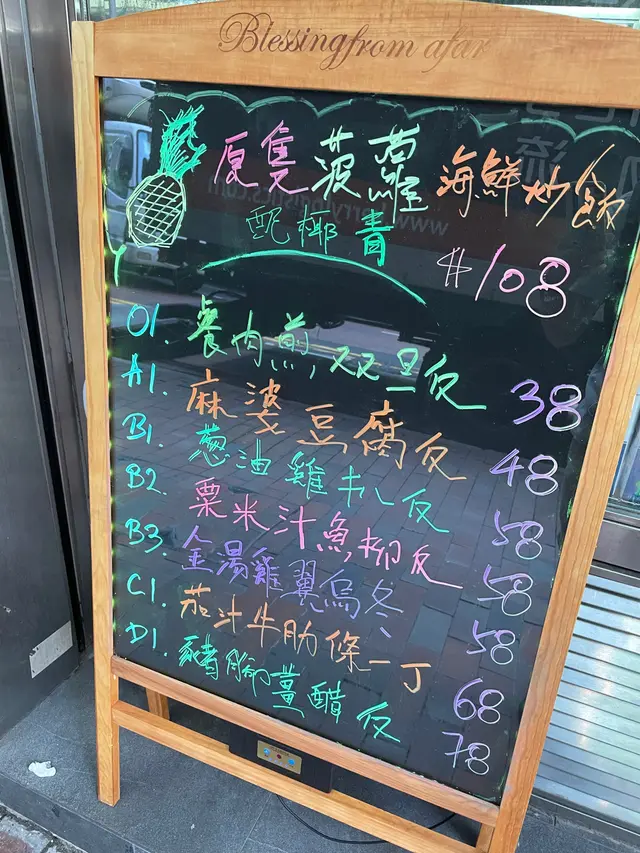 Blessing from afar
原隻菠蘿海鮮炒飯
配椰青
$108
01. 餐肉煎双旦反 38
A1. 麻婆豆腐反 48
B1. 葱油雞扒反 58
B2. 粟米汁魚柳反 58
B3. 金湯雞翼烏冬 58
C1. 茄汁牛肋條一丁 68
D1. 豬腳薑醋反 78